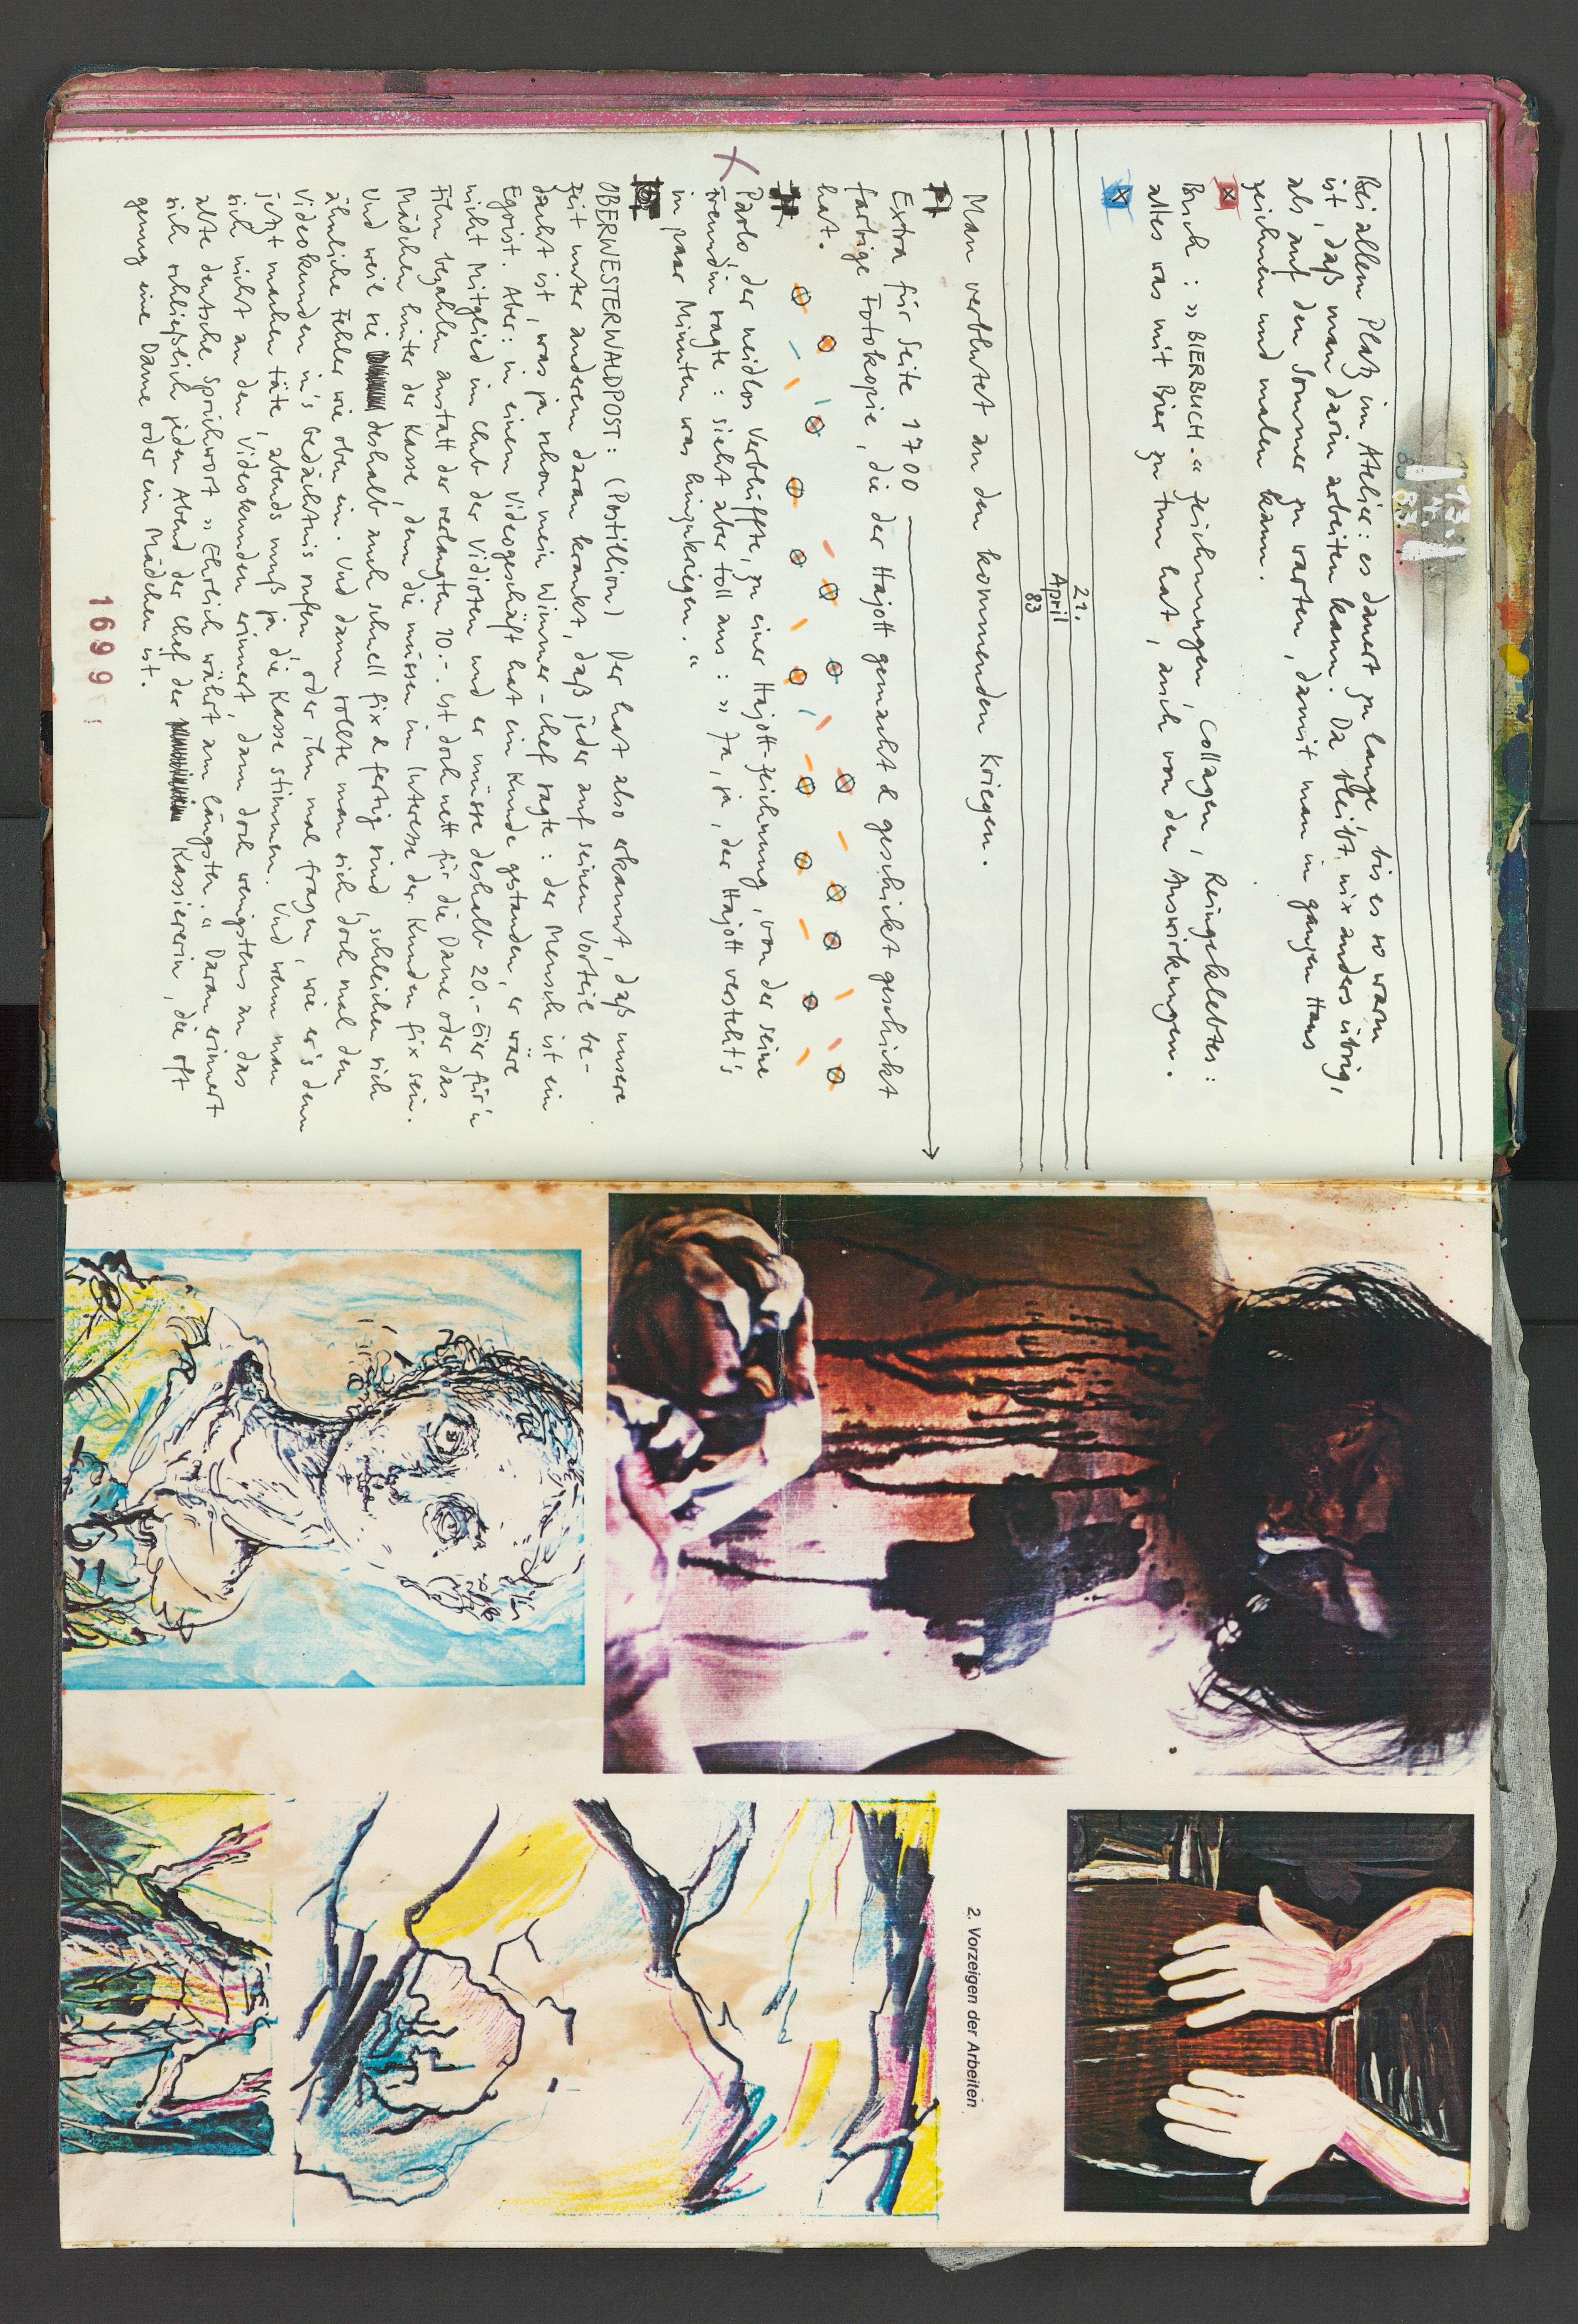 13.
4.
83.
Bei allem Platz im Atelier: es dauert zu lange, bis es so warm
ist, daß man darin arbeiten kann. Da bleibt nix anders übrig,
als auf den Sommer zu warten, damit man im ganzen Haus
zeichnen und malen kann.
x
Buch: »BIERBUCH.« Zeichnungen, Collagen, Reingeklebtes:
alles was mit Bier zu tun hat, auch von den Auswirkungen.
x
21.
April
83
Man verblutet an den kommenden Kriegen.
Extra für Seite 1700
farbige Fotokopie, die der Hajott gemacht & geschickt geschickt
hat.
Parlo, der neidlos Verblüffte, zu einer Hajott-Zeichnung, von der seine
Freundin sagte: sieht aber toll aus: »Ja, ja, der Hajott versteht's
in paar Minuten was hinzukriegen.«
OBERWESTERWALDPOST: (Postillion) Der hat also erkannt, daß unsere
Zeit unter anderem daran krankt, daß jeder auf seinen Vorteil be-
dacht ist, was ja schon mein Wimmer-Chef sagte: der Mensch ist ein
Egoist. Aber: in einem Videogeschäft hat ein Kunde gestanden, er wäre
nicht Mitglied im Club der Vidioten und er müsse deshalb 20.- Eier für'n
Film bezahlen anstatt der verlangten 10.-. Ist doch nett für die Dame oder das
Mädchen hinter der Kasse, denn die müssen im Interesse der Kunden fix sein.
Und weil sie deshalb auch schnell fix & fertig sind, schleichen sich
ähnliche Fehler wie oben ein. Und dann sollte man sich doch mal den
Videokunden in's Gedächtnis rufen, oder ihn mal fragen, wie er's denn
jetzt machen täte, abends muß ja die Kasse stimmen. Und wenn man
sich nicht an den Videokunden erinnert, dann doch wenigstens an das
alte deutsche Sprichwort »Ehrlich währt am längsten.« Daran erinnert
sich schließlich jeden Abend der Chef der Kassiererin, die oft
genug eine Dame oder ein Mädchen ist.
1699
2. Vorzeigen der Arbeiten